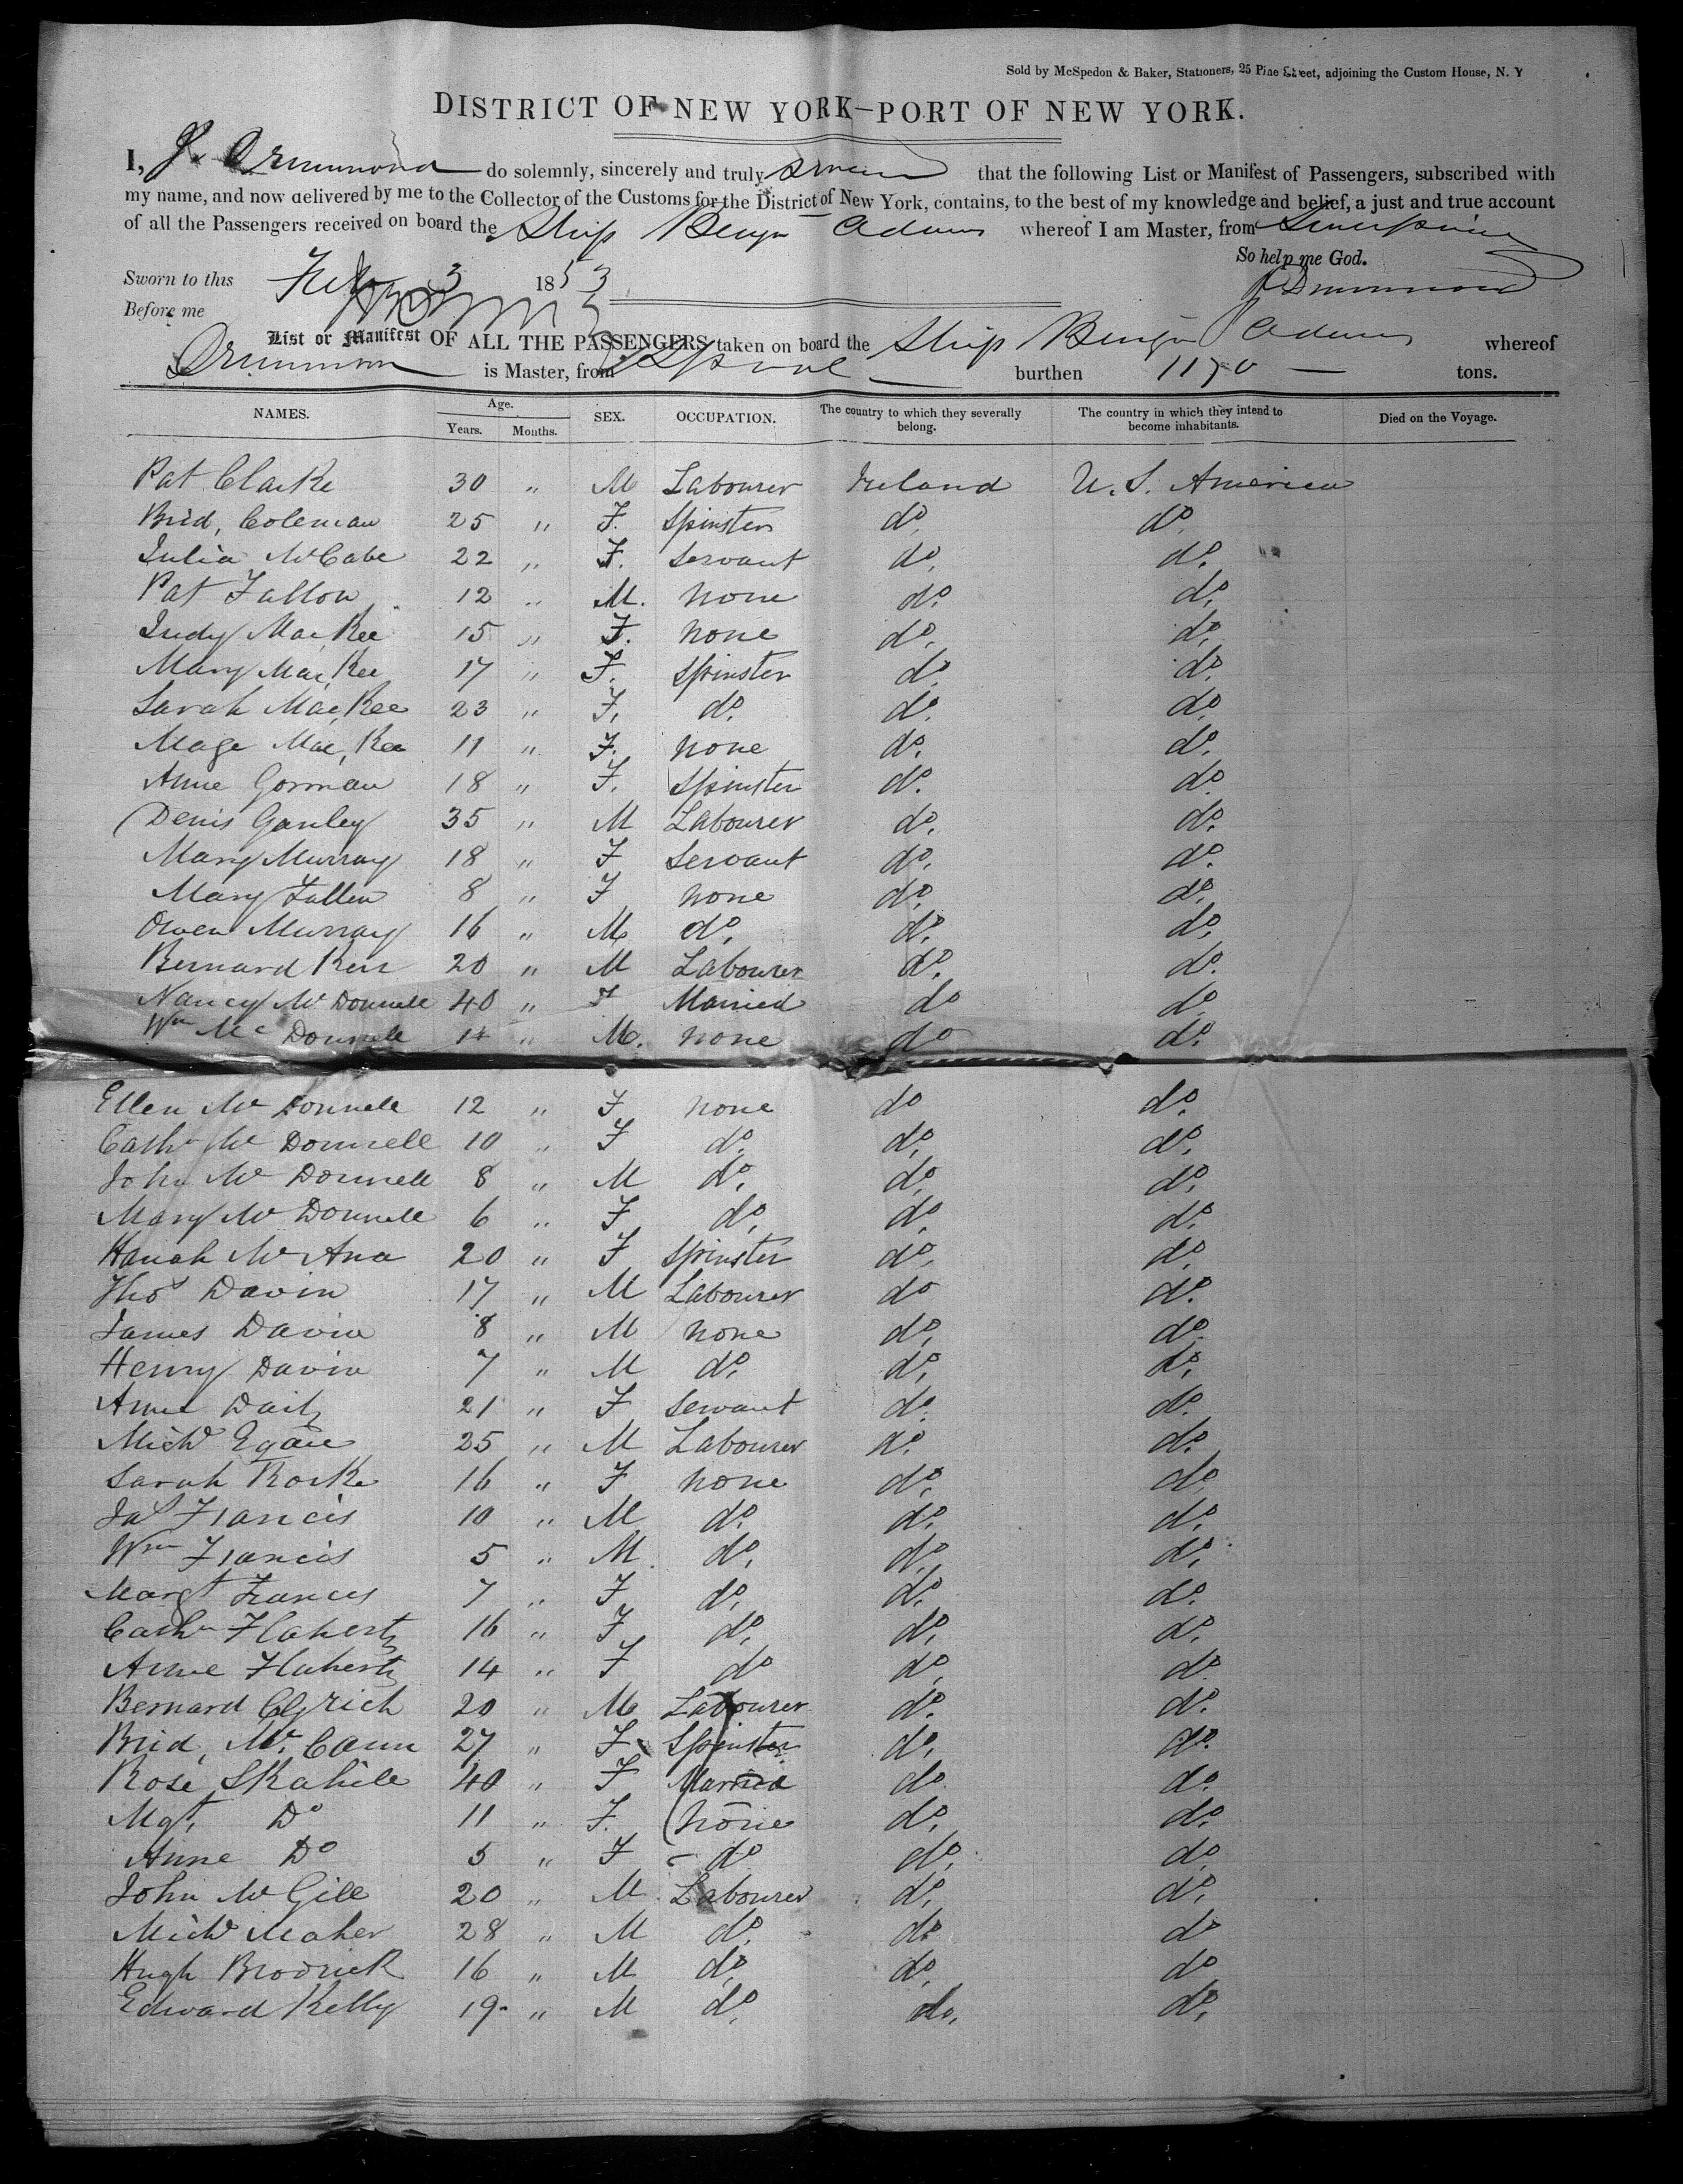 Sold by McSpedon & Baker, Stationers, 25 Pine Street, adjoining the Custom House, N. Y
DISTRICT OF NEW YORK—PORT OF NEW YORK.
I, J. Drummond do solemnly, sincerely and truly swear that the following List or Manifest of Passengers, subscribed with
my name, and now delivered by me to the Collector of the Customs for the District of New York, contains, to the best of my knowledge and belief, a just and true account
of all the Passengers received on board the Ship Benjn Adams whereof I am Master, from Liverpool
So help me God.
Sworn to this Feby 3 1853
J Drummond
Before me
List or Manifest OF ALL THE PASSENGERS taken on board the Ship Benjn Adams whereof
Drummond is Master, from Lpool burthen 1170 tons.
NAMES. Age. Years. Months. SEX. OCCUPATION. The country to which they severally belong. The country in which they intend to become inhabitants. Died on the Voyage.
Pat Clarke 30 " M Labourer Ireland U. S. America
Brid, Coleman 25 " F. Spinster do. do.
Julia McCabe 22 " F. Servant do. do.
Pat Fallon 12 " M. none do. do.
Judy Mac,Kee 15 " F. none do. do.
Mary Mac,Kee 17 " F. Spinster do. do.
Sarah Mac,Kee 23 " F. do. do. do.
Mage Mac,Kee 11 " F. none do. do.
Anne Gorman 18 " F. Spinster do. do.
Denis Ganley 35 " M Labourer do. do.
Mary Murray 18 " F Servant do. do.
Mary Fallen 8 " F none do. do.
Owen Murray 16 " M do. do. do.
Bernard Kerr 20 " M Labourer do. do.
Nancy Mc Donnell 40 " F Married do do.
Wm Mc Donnell 14 " M. none do do.
Ellen Mc Donnell 12 " F none do do.
Cathn Mc Donnell 10 " F do. do. do.
John Mc Donnell 8 " M do. do. do.
Mary Mc Donnell 6 " F do. do. do.
Hanah Mc Ana 20 " F Spinster do. do.
Thos Davin 17 " M Labourer do do.
James Davin 8 " M none do. do.
Henry Davin 7 " M do. do. do.
Anne Daily 21 " F Servant do. do.
Michl Egan 25 " M Labourer do. do.
Sarah Rorke 16 " F none do. do.
Jas Francis 10 " M do. do. do.
Wm Francis 5 " M do. do. do.
Margt Frances 7 " F do. do. do.
Cathn Flaherty 16 " F do. do. do.
Anne Flaherty 14 " F do do. do
Bernard 20 " M Labourer do. do.
Brid, Mc Cann 27 " F Spinster do. do.
Rose Skahill 40 " F Married do. do.
Mgt, Do 11 " F. none do. do.
Anne Do 5 " F do do. do
John Mc Gill 20 " M Labourer do. do.
Michl Maher 28 " M do. do. do
Hugh Brodrick 16 " M do. do. do
Edward Kelly 19 " M do. do. do.